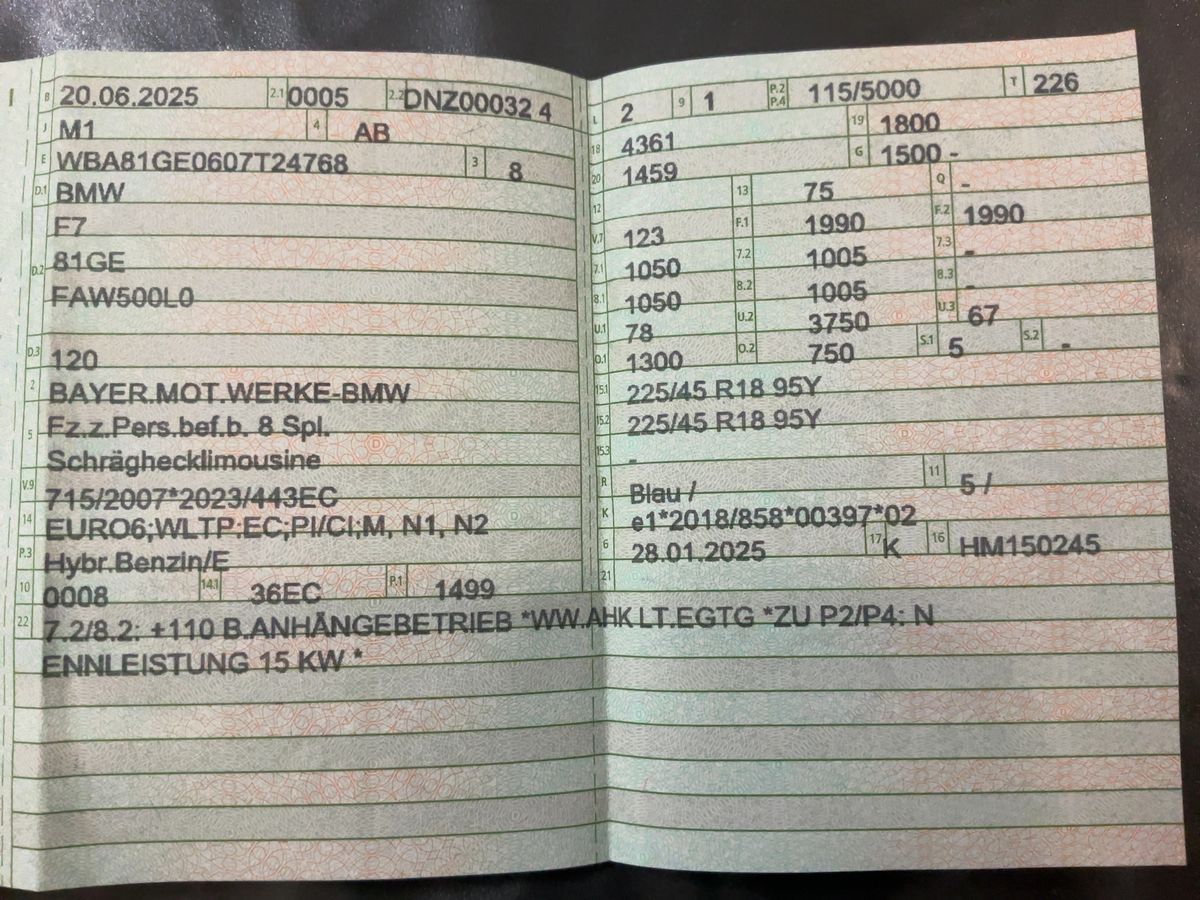 B 20.06.2025 2.1 0005 2.2 DNZ00032 4
J M1 4 AB
E WBA81GE0607T24768 3 8
D.1 BMW
F7
D.2 81GE
FAW500L0
D.3 120
2 BAYER.MOT.WERKE-BMW
5 Fz.z.Pers.bef.b. 8 Spl.
Schräghecklimousine
V.9 715/2007*2023/443EC
14 EURO6;WLTP:EC;PI/CI;M, N1, N2
P.3 Hybr.Benzin/E
10 0008 14.1 36EC P.1 1499
L 2 9 1 P.2 P.4 115/5000 T 226
18 4361 19 1800
20 1459 G 1500 -
12 13 75 Q -
V.7 123 F.1 1990 F.2 1990
7.1 1050 7.2 1005 7.3 -
8.1 1050 8.2 1005 8.3 -
U.1 78 U.2 3750 U.3 67
O.1 1300 O.2 750 S.1 5 S.2 -
15.1 225/45 R18 95Y
15.2 225/45 R18 95Y
15.3 -
R Blau / 11 5 /
K e1*2018/858*00397*02
6 28.01.2025 17 K 16 HM150245
21
22 7.2/8.2: +110 B.ANHÄNGEBETRIEB *WW.AHK LT.EGTG *ZU P2/P4: N
ENNLEISTUNG 15 KW *